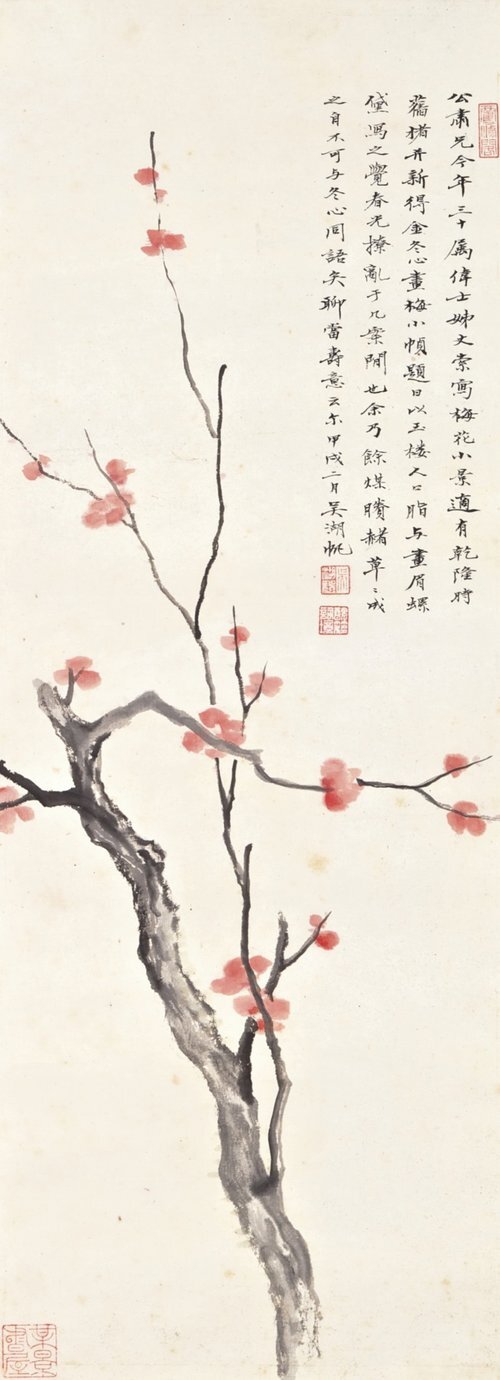 公肅兄今年三十屬偉士姊丈索寫梅花小景適有乾隆時
舊楮并新得金冬心畫梅小幀題曰以玉樓人口脂与畫眉螺
黛寫之覺春光撩亂于几案間也余乃餘煤賸赭草〻成
之自不可与冬心同語矣聊當壽意云尔甲戌二月吳湖帆
梅景書屋